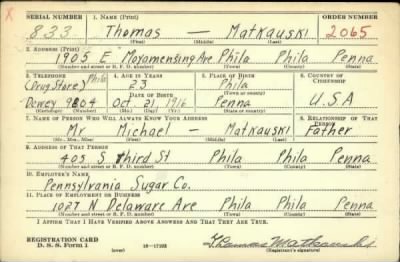 X
SERIAL NUMBER 1. NAME (Print) ORDER NUMBER
833 Thomas — Matkauski 2065
(First) (Middle) (Last)
2. ADDRESS (Print)
1905 E Moyamensing Ave Phila Phila Penna.
(Number and street or R. F. D. number) (Town) (County) (State)
3. TELEPHONE 4. AGE IN YEARS 5. PLACE OF BIRTH 6. COUNTRY OF CITIZENSHIP
(Drug Store) Phila 23 Phila
DATE OF BIRTH
Dewey 9804 Oct 21 1916 Penna U.S.A
(Exchange) (Number) (Mo.) (Day) (Yr.) (State or country)
7. NAME OF PERSON WHO WILL ALWAYS KNOW YOUR ADDRESS 8. RELATIONSHIP OF THAT PERSON
Mr Michael — Matkauski Father
(Mr., Mrs., Miss) (First) (Middle) (Last)
9. ADDRESS OF THAT PERSON
405 S Third St Phila Phila Penna
(Number and street or R. F. D. number) (Town) (County) (State)
10. EMPLOYER'S NAME
Pennsylvania Sugar Co.
11. PLACE OF EMPLOYMENT OR BUSINESS
1037 N Delaware Ave Phila Phila Penna
(Number and street or R. F. D. number) (Town) (County) (State)
I AFFIRM THAT I HAVE VERIFIED ABOVE ANSWERS AND THAT THEY ARE TRUE.
REGISTRATION CARD
D. S. S. Form 1 (over) 16—17105 Thomas Matkauski
(Registrant's signature)